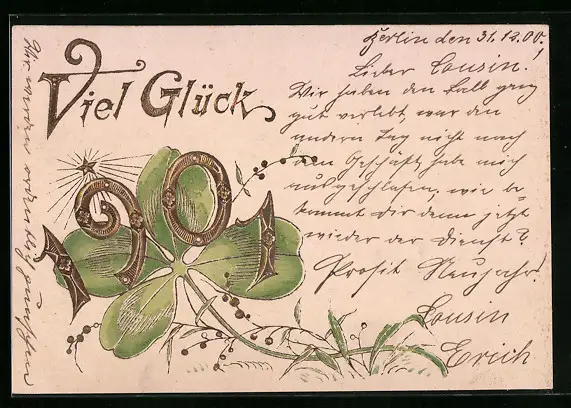 Viel Glück
1901
Berlin den 31.12.00.
Lieber Cousin!
Wir haben den Ball ganz
gut verlebt, war den
andern Tag nicht nach
dem Geschäft, habe mich
ausgeschlafen, wie be-
kommt dir denn jetzt
wieder der Dienst?
Prosit Neujahr!
Cousin
Erich